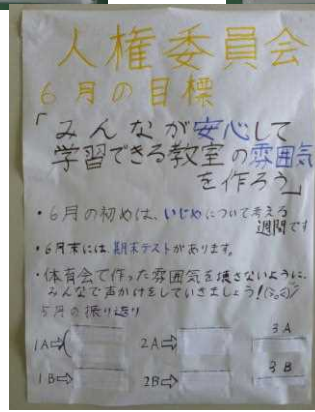 人権委員会
6月の目標
「みんなが安心して
学習できる教室の雰囲気
を作ろう」
・6月の初めは、いじめについて考える
週間です
・6月末には、期末テストがあります。
・体育会で作った雰囲気を壊さないように、
みんなで声かけをしていきましょう!
5月の振り返り
1A⇨ 2A⇨ 3A
1B⇨ 2B⇨ 3B